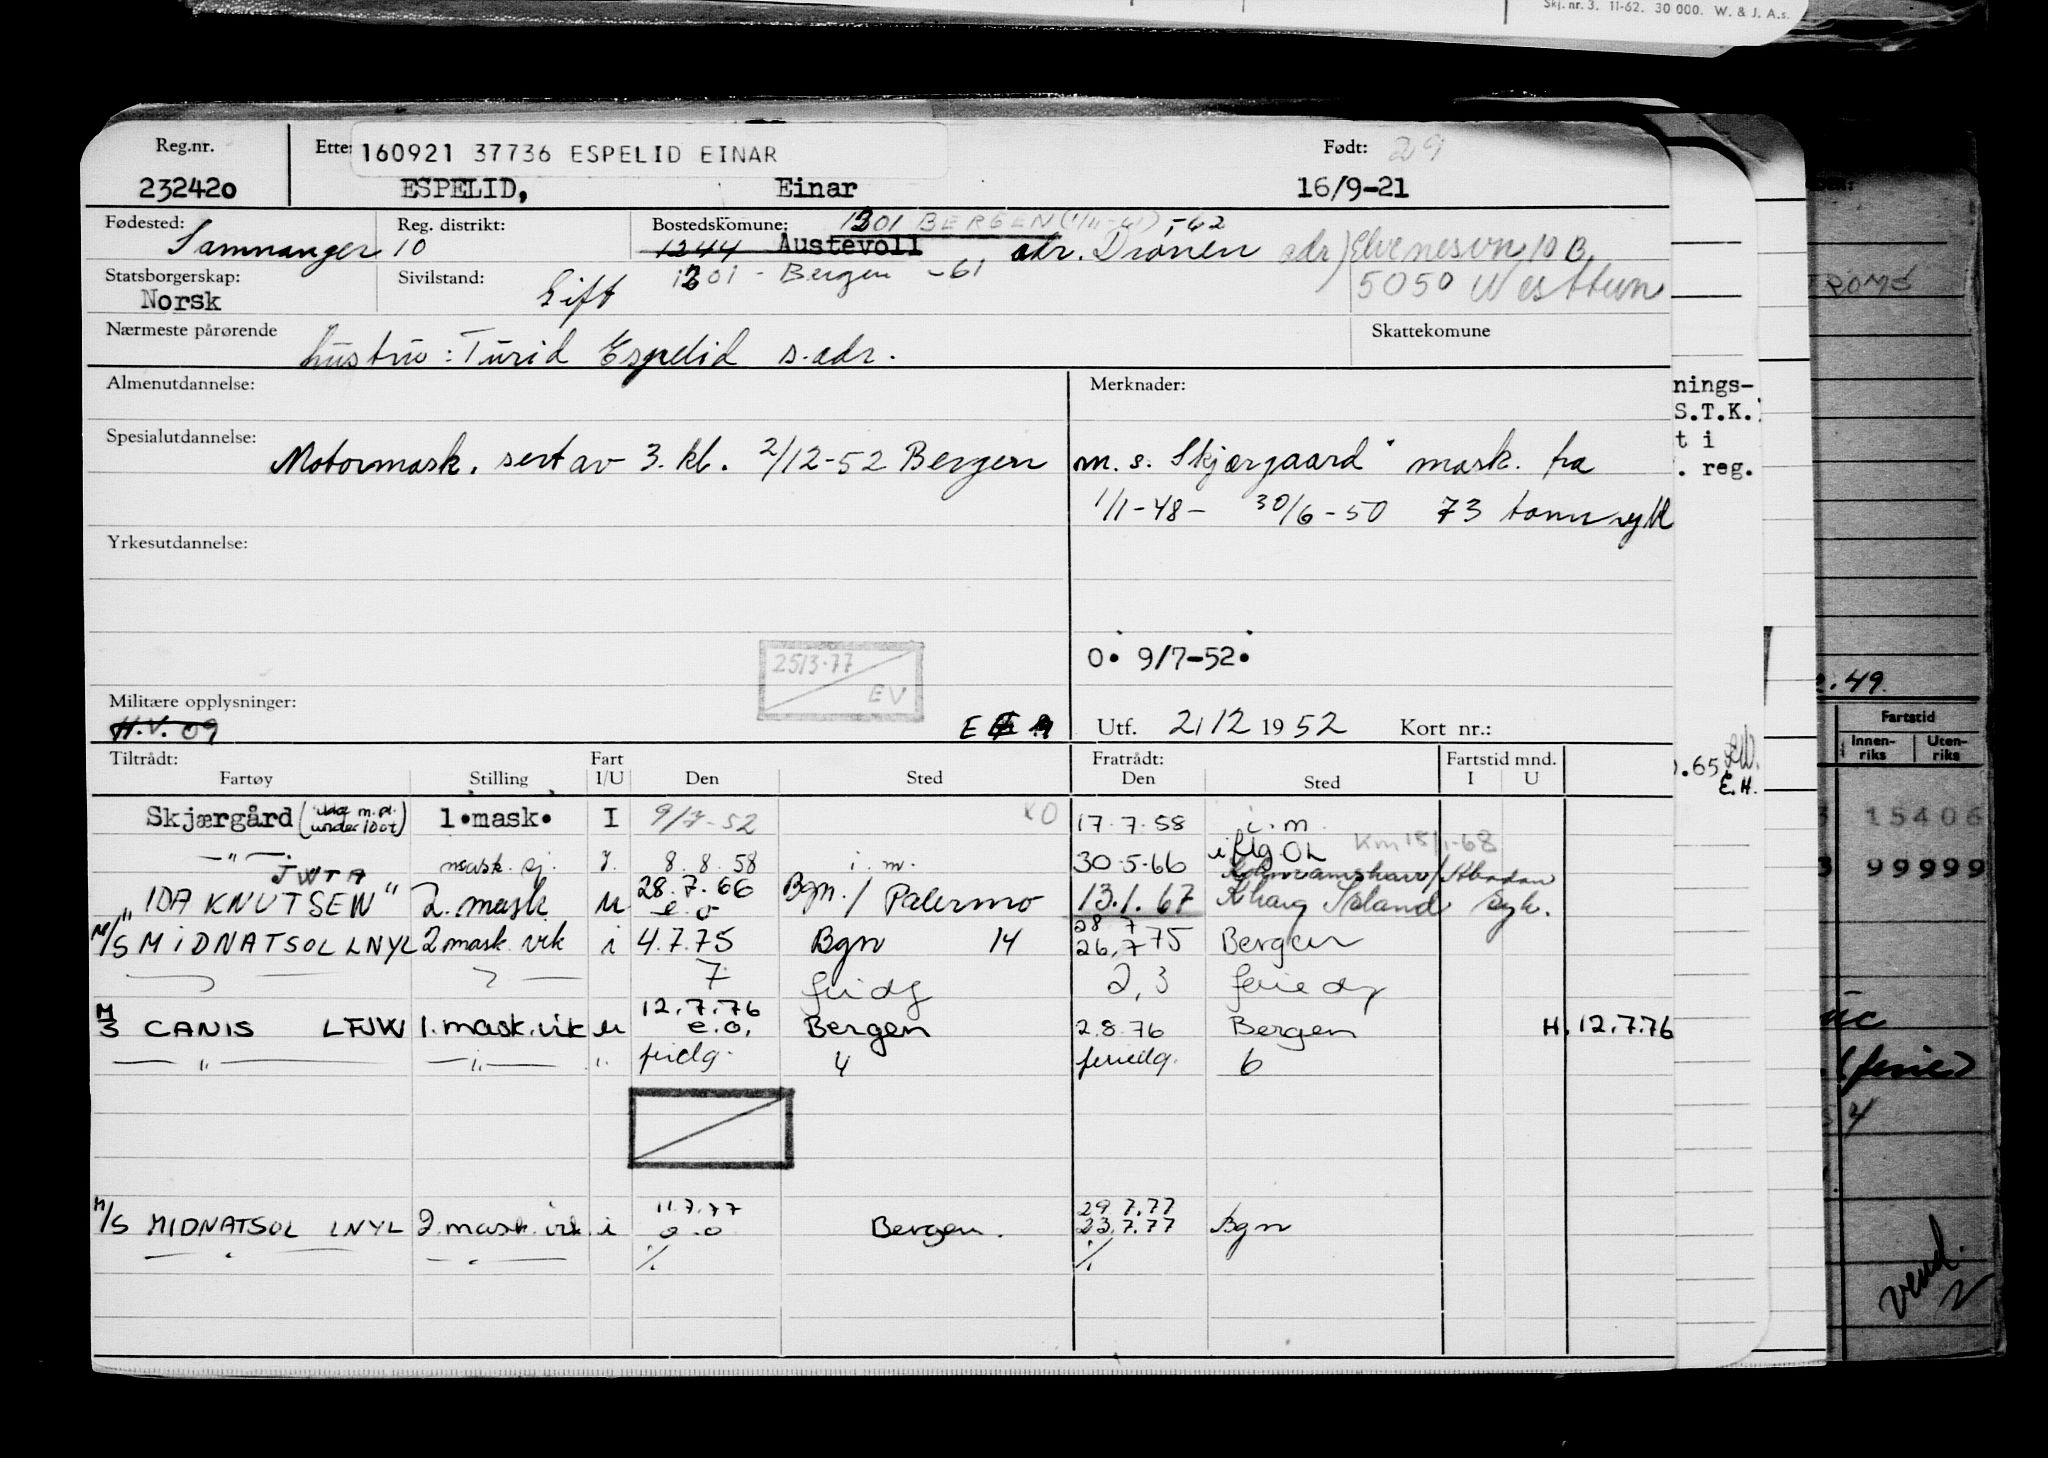 Skj. nr. 3. 11-62. 30 000. W. & J. A.s.
Reg.nr. Ette: 160921 37736 ESPELID EINAR Født: 29
232420 ESPELID, Einar 16/9-21
Fødested: Reg. distrikt: Bostedskomune: 1301 BERGEN (1/11-61), -62
Samnanger 10 1244 Austevoll adr. Drønen adr) Elvenesvn 10 B.
Statsborgerskap: Sivilstand: 1301 - Bergen -61 5050 Nesttun
Norsk Gift
Nærmeste pårørende Skattekomune
hustru: Turid Espelid s. adr.
Almenutdannelse: Merknader:
Spesialutdannelse: Motormask. sert av 3. kl. 2/12-52 Bergen m. s. Skjærgaard mask. fra
1/1-48- 30/6-50 73 tonn
Yrkesutdannelse:
25/3-77
EV
O. 9/7-52.
Militære opplysninger:
H.V. 09
Utf. 2/12 1952 Kort nr.:
Tiltrådt: Fart Fratrådt: Fartstid mnd.
Fartøy Stilling I/U Den Sted Den Sted I U
Skjærgård (under 100t) 1.mask. I 9/7-52 KO 17.7.58 i.m.
—"— mask. sj. I. 8.8.58 i.m. 30.5.66 Km 15/1-68
JWTA
"IDA KNUTSEN" 2. mask u 28.7.66 e.o Bgn. / Palermo 13.1.67 Kharg Island syk.
M/S MIDNATSOL LNYL 2 mask. vik i 4.7.75 Bgn 14 28 7 26.7 75 Bergen
7 feridg 2,3 feriedg
M/S CANIS LFJW 1. mask. vik u 12.7.76 e.o. Bergen 2.8.76 Bergen H. 12.7.76
—"— —"— " feridg. 4 feriedg. 6
M/S MIDNATSOL LNYL 2. mask. vik. i 11.7.77 o.o Bergen. 29.7.77 23.7.77 Bgn
—"— —"— %. %.
nings-
S.T.K.
t i
. reg.
.65
E.H.
.49.
Fartstid
Innen-riks Uten-riks
15406
99999
(ferie)
vend.